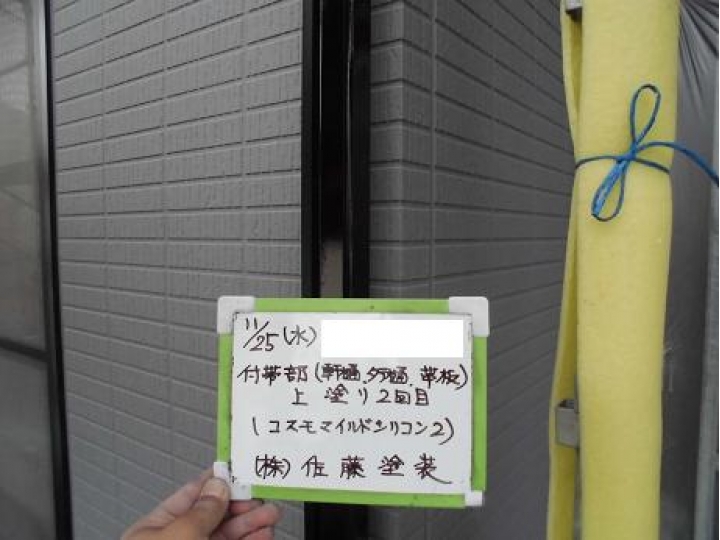 11/25(水)
付帯部(軒樋、タテ樋、帯板)
上塗り2回目
(コスモマイルドシリコン2)
(株)佐藤塗装